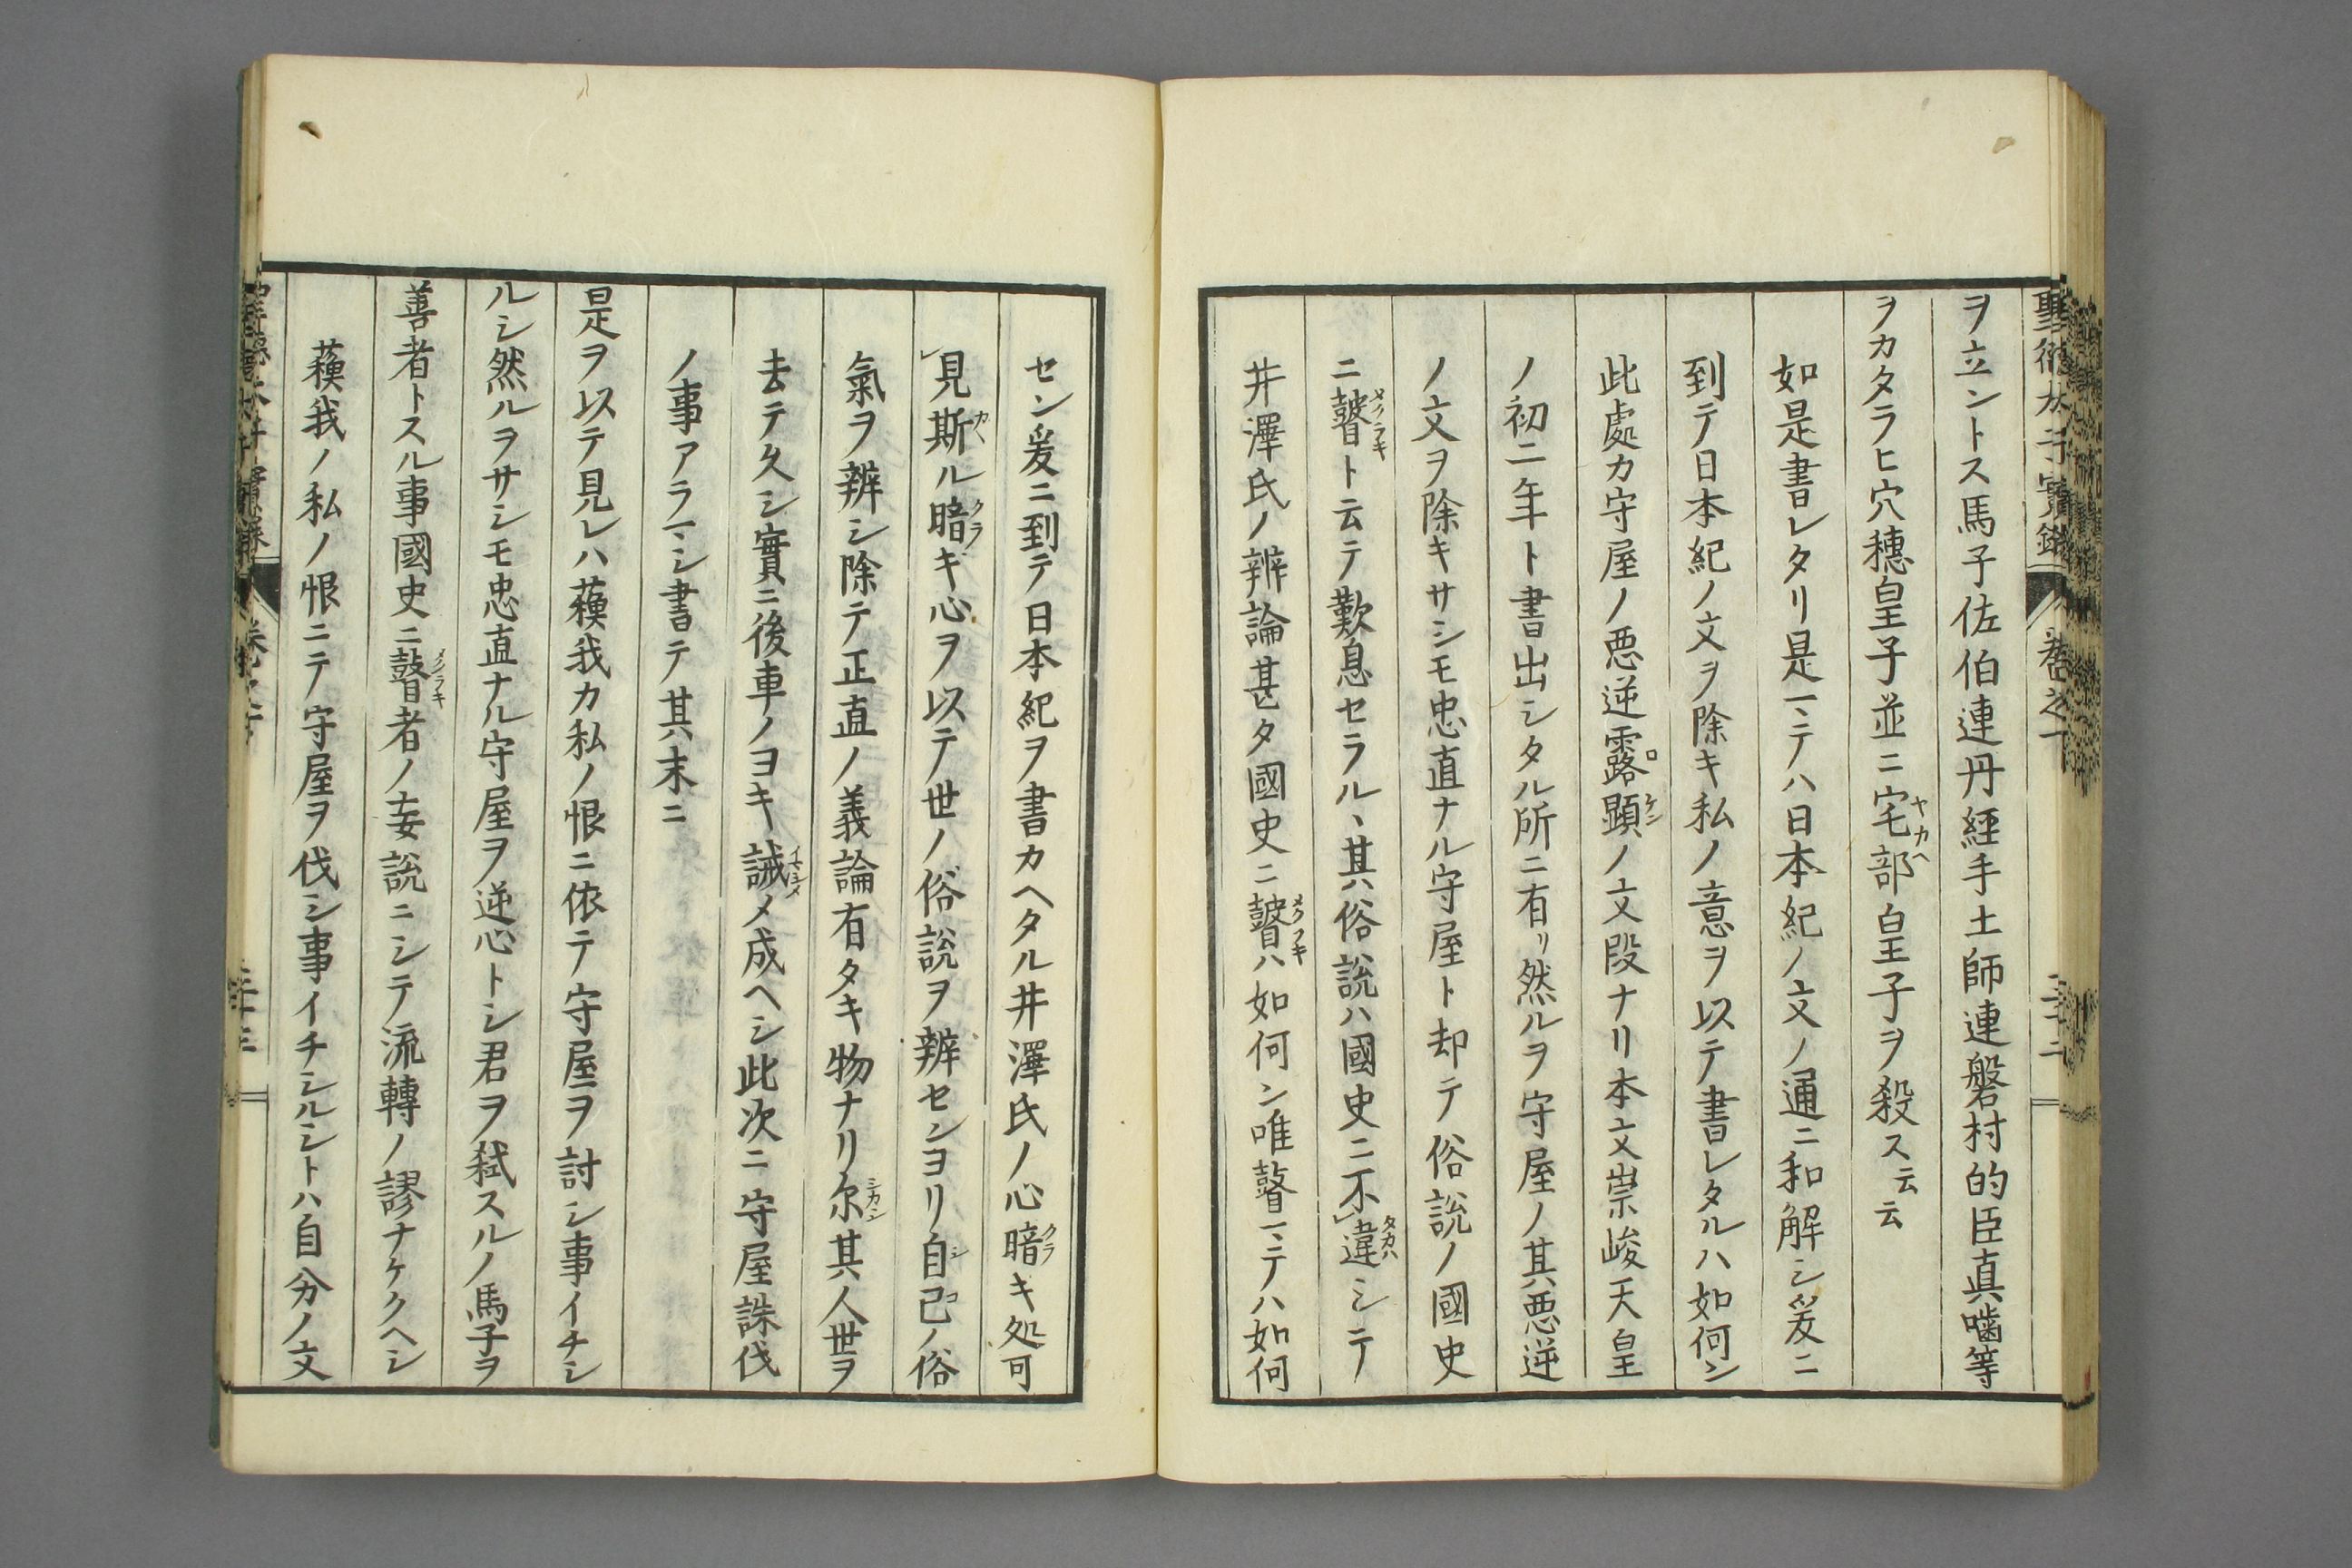 聖德太子實錄 卷之一 二十二
ヲ立ントス馬子佐伯連丹経手土師連磐村的臣真噛等
ヲカタラヒ穴穗皇子並ニ宅部皇子ヲ殺ス云云
如是書レタリ是ニテハ日本紀ノ文ノ通ニ和解シ爰ニ
到テ日本紀ノ文ヲ除キ私ノ意ヲ以テ書レタルハ如何ン
此處カ守屋ノ悪逆露顕ノ文段ナリ本文崇峻天皇
ノ初二年ト書出シタル所ニ有リ然ルヲ守屋ノ其悪逆
ノ文ヲ除キサシモ忠直ナル守屋ト却テ俗説ノ國史
ニ瞽ト云テ歎息セラル、其俗説ハ國史ニ不違シテ
井澤氏ノ辨論甚タ國史ニ瞽ハ如何ン唯瞽ニテハ如何
セン爰ニ到テ日本紀ヲ書カヘタル井澤氏ノ心暗キ処可
見斯ル暗キ心ヲ以テ世ノ俗説ヲ辨センヨリ自己ノ俗
氣ヲ辨シ除テ正直ノ義論有タキ物ナリ尔其人世ヲ
去テ久シ實ニ後車ノヨキ誡メ成ヘシ此次ニ守屋誅伐
ノ事アラマシ書テ其末ニ
是ヲ以テ見レハ蘓我カ私ノ恨ニ依テ守屋ヲ討シ事イチシ
ルシ然ルヲサシモ忠直ナル守屋ヲ逆心トシ君ヲ弑スルノ馬子ヲ
善者トスル事國史ニ瞽者ノ妄説ニシテ流轉ノ謬ナケクヘシ
蘓我ノ私ノ恨ニテ守屋ヲ伐シ事イチシルシトハ自分ノ文